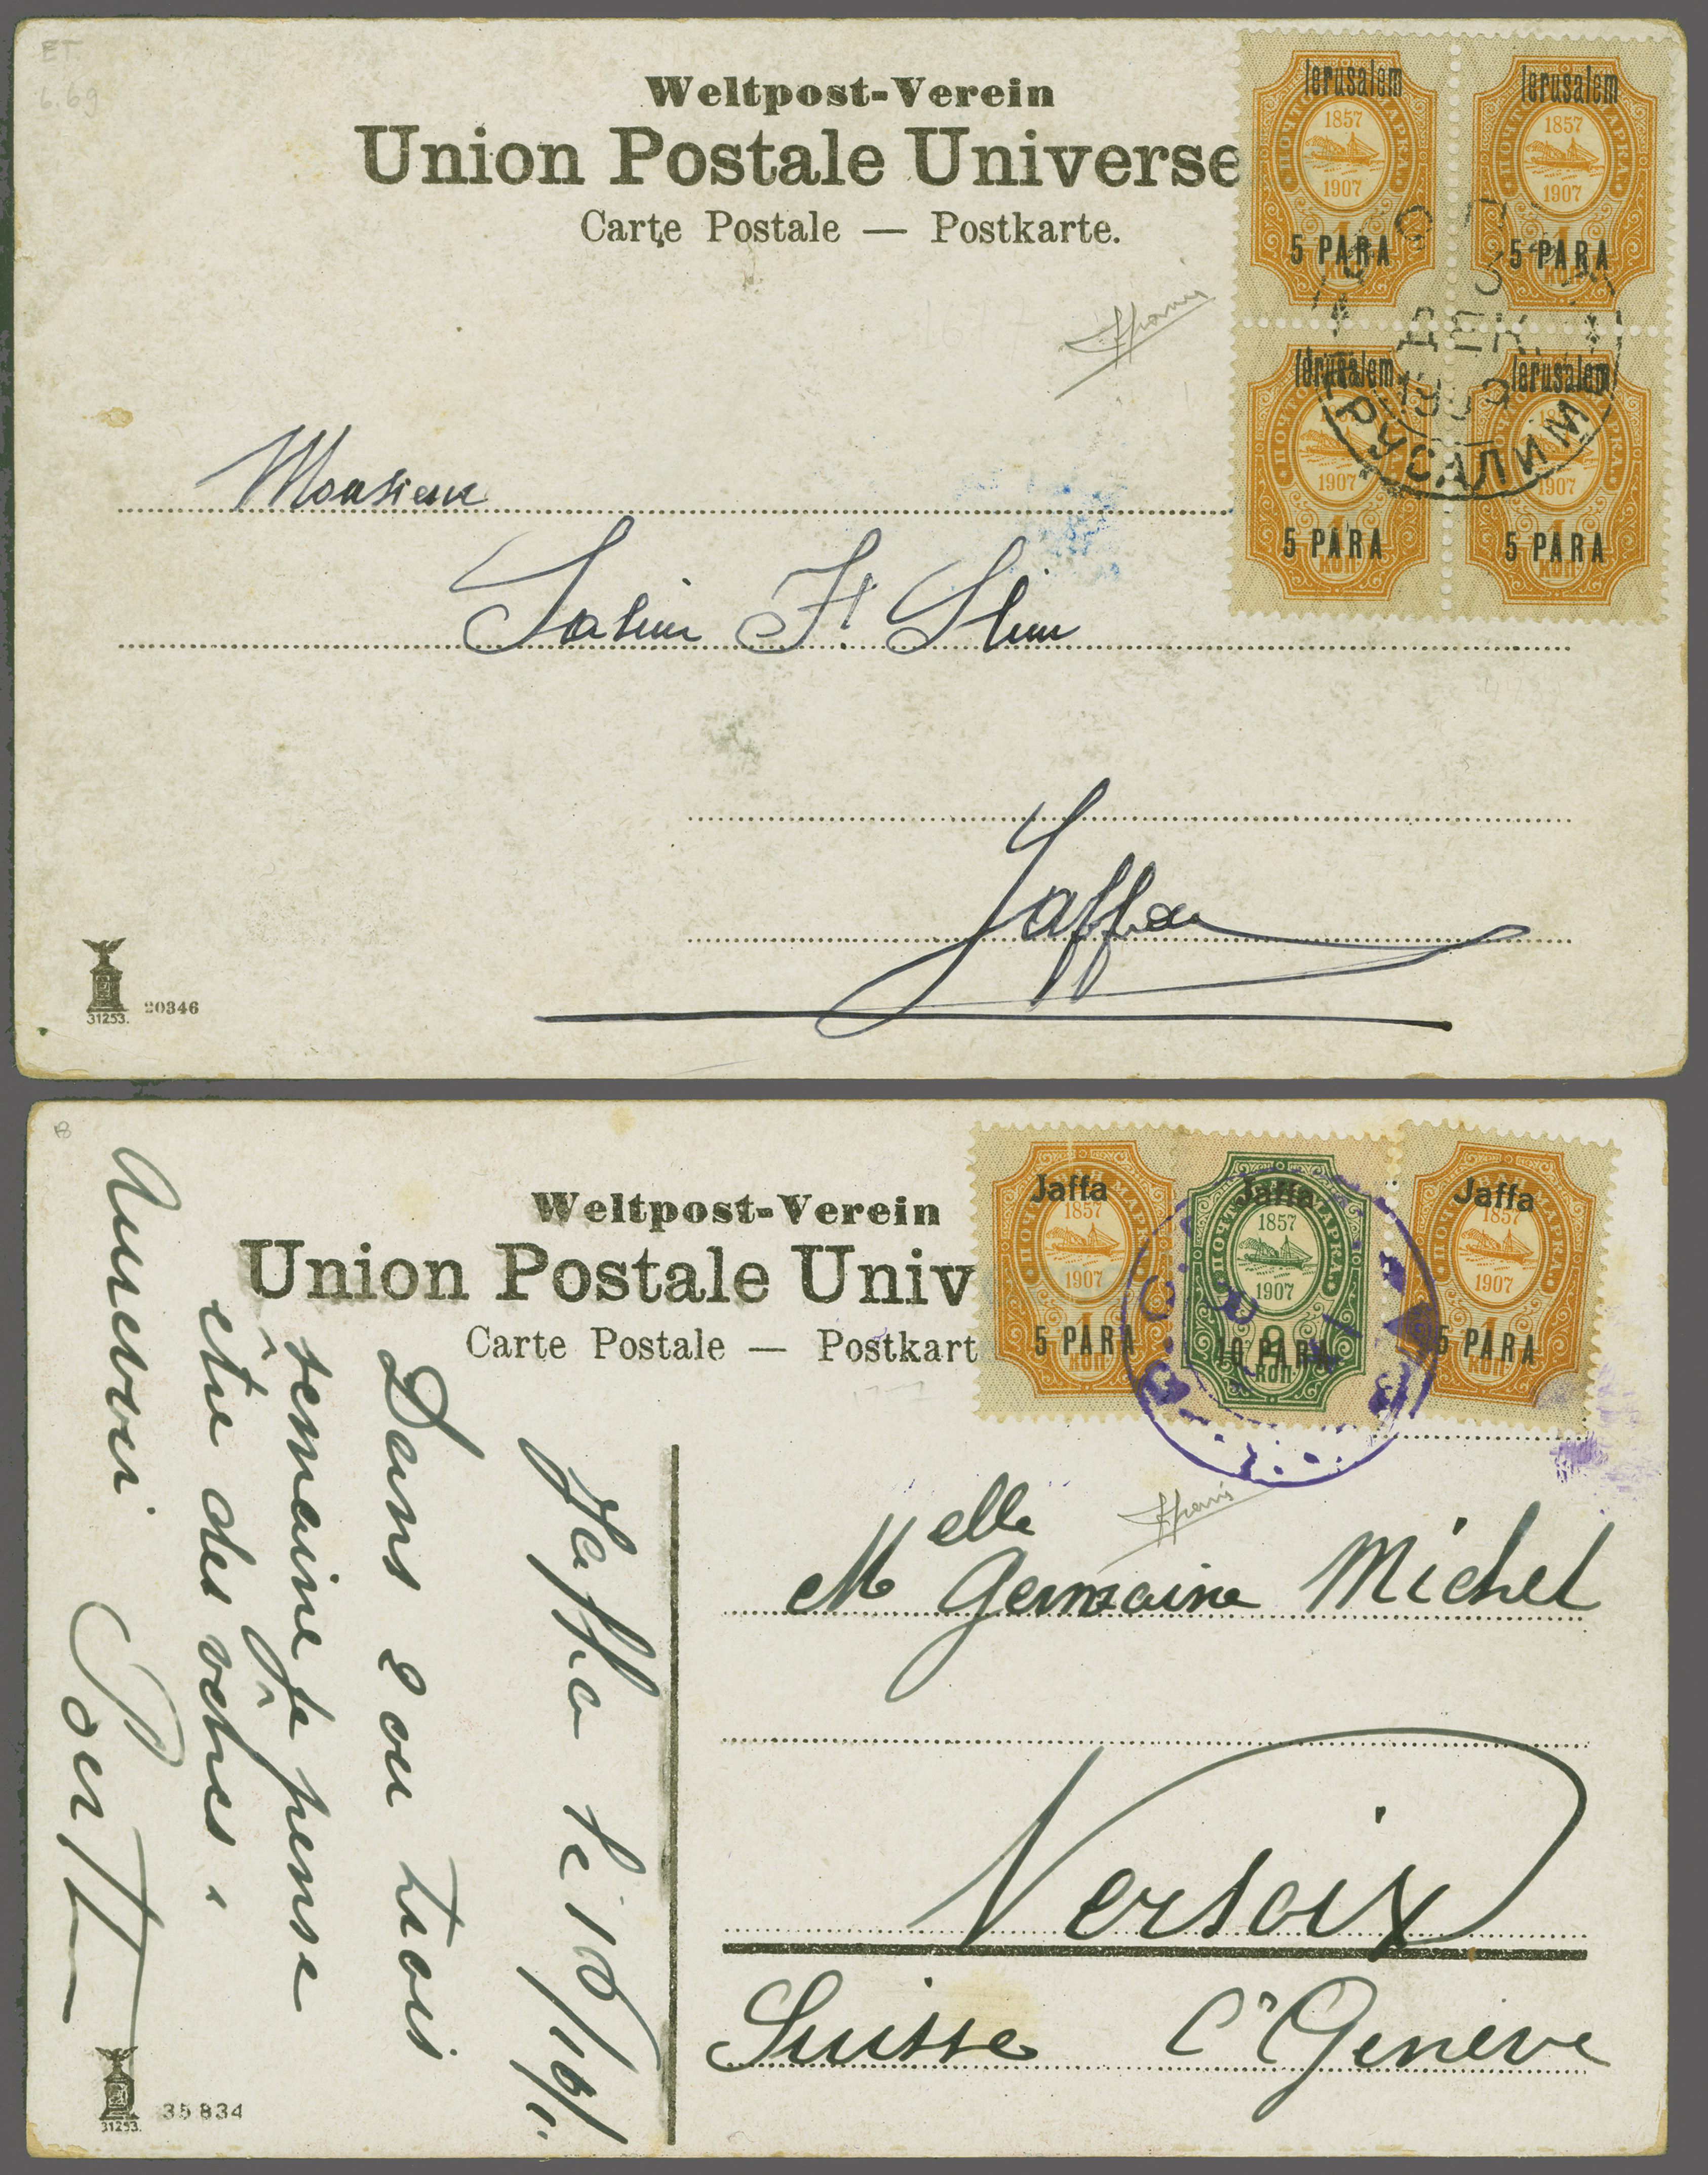 ET.
6.69
Weltpost-Verein
Union Postale Universe
Carte Postale — Postkarte.
Ierusalem
1857
ПОЧТОВАЯ МАРКА
1907
5 PARA
Ierusalem
1857
1907
5 PARA
Ierusalem
1907
5 PARA
КОП
Ierusalem
1907
5 PARA
КОП
3
ДЕК.
1909
ІЕРУСАЛИМЪ
Monsieur
Jaffa
31253.
20346
B
Weltpost-Verein
Union Postale Univ
Carte Postale — Postkart
Jaffa
1857
1907
5 PARA
КОП
Jaffa
1857
1907
10 PARA
КОП
Jaffa
1857
1907
5 PARA
КОП
Jaffa le 10/10/
Dans 2 ou trois
semaine je pense
être des vôtres.
Aurevoir
Melle Germaine Michel
Versoix
Suisse Ct Genève
31253.
35834